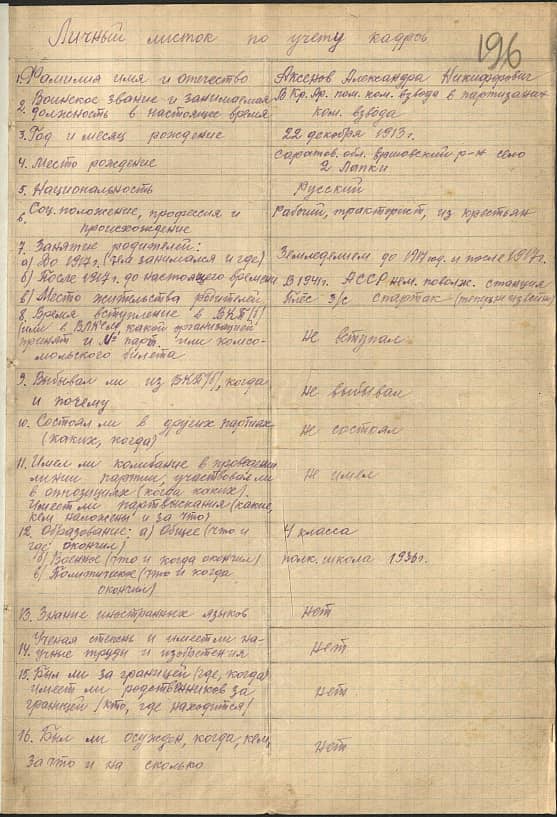 Личный листок по учету кадров
196
1. Фамилия имя и отечество Аксенов Александра Никифорович
2. Воинское звание и занимаемая должность в настоящее время В Кр. Ар. пом. ком. взвода в партизанах ком. взвода
3. Год и месяц рождение 22 декабря 1913г.
4. Место рождение Саратов. обл. р-н село 2 Лапки
5. Национальность Русский
6. Соц. положение, профессия и происхождение Рабочий, тракторист, из крестьян
7. Занятие родителей:
а) До 1917г. (чем занимался и где) Земледелием до 1917 год. и после 1917г.
б) После 1917г. до настоящего времени В 1941г. АССР нем. поволж. станция
в) Место жительства родителей з/с Спартак
8. Время вступление в ВКП(б)
(или в ВЛКСМ какой организацией
принят и № парт. или комсо-
мольского билета Не вступал
9. Выбывал ли из ВКП(б), когда
и почему Не выбывал
10. Состоял ли в других партиях
(каких, когда) Не состоял
11. Имел ли колибание в проведении
линии партии, участвовал ли
в оппозициях (когда каких). Не имел
Имеет ли партвзыскания (какие,
кем наложены и за что)
12. Образование: а) Общее (что и
где окончил) 4 класса
б) Военное (что и когда окончил) полк. школа 1936г.
в) Политическое (что и когда
окончил)
13. Знание иностранных языков нет
14. Ученая степень и имеет ли на-
учные труды и изобретения нет
15. Был ли за границей (где, когда)
имеет ли родственников за
границей (кто, где находится) нет
16. Был ли осужден, когда, кем,
за что и на сколько нет